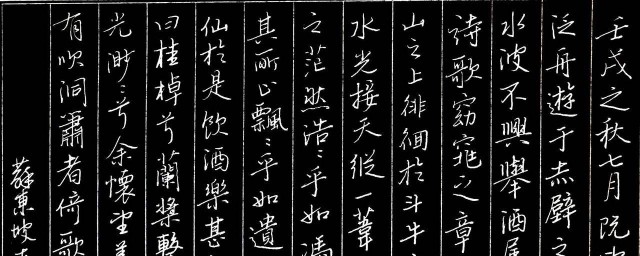 壬戌之秋七月既
泛舟遊于赤壁之
水波不興舉酒屬
詩歌窈窕之章
山之上徘徊於斗牛
水光接天縱一葦
之茫然浩〻乎如馮
其所止飄〻乎如遺
仙於是飲酒樂甚
曰桂棹兮蘭槳擊
光渺〻兮余懷望美
有吹洞簫者倚歌
蘇東坡